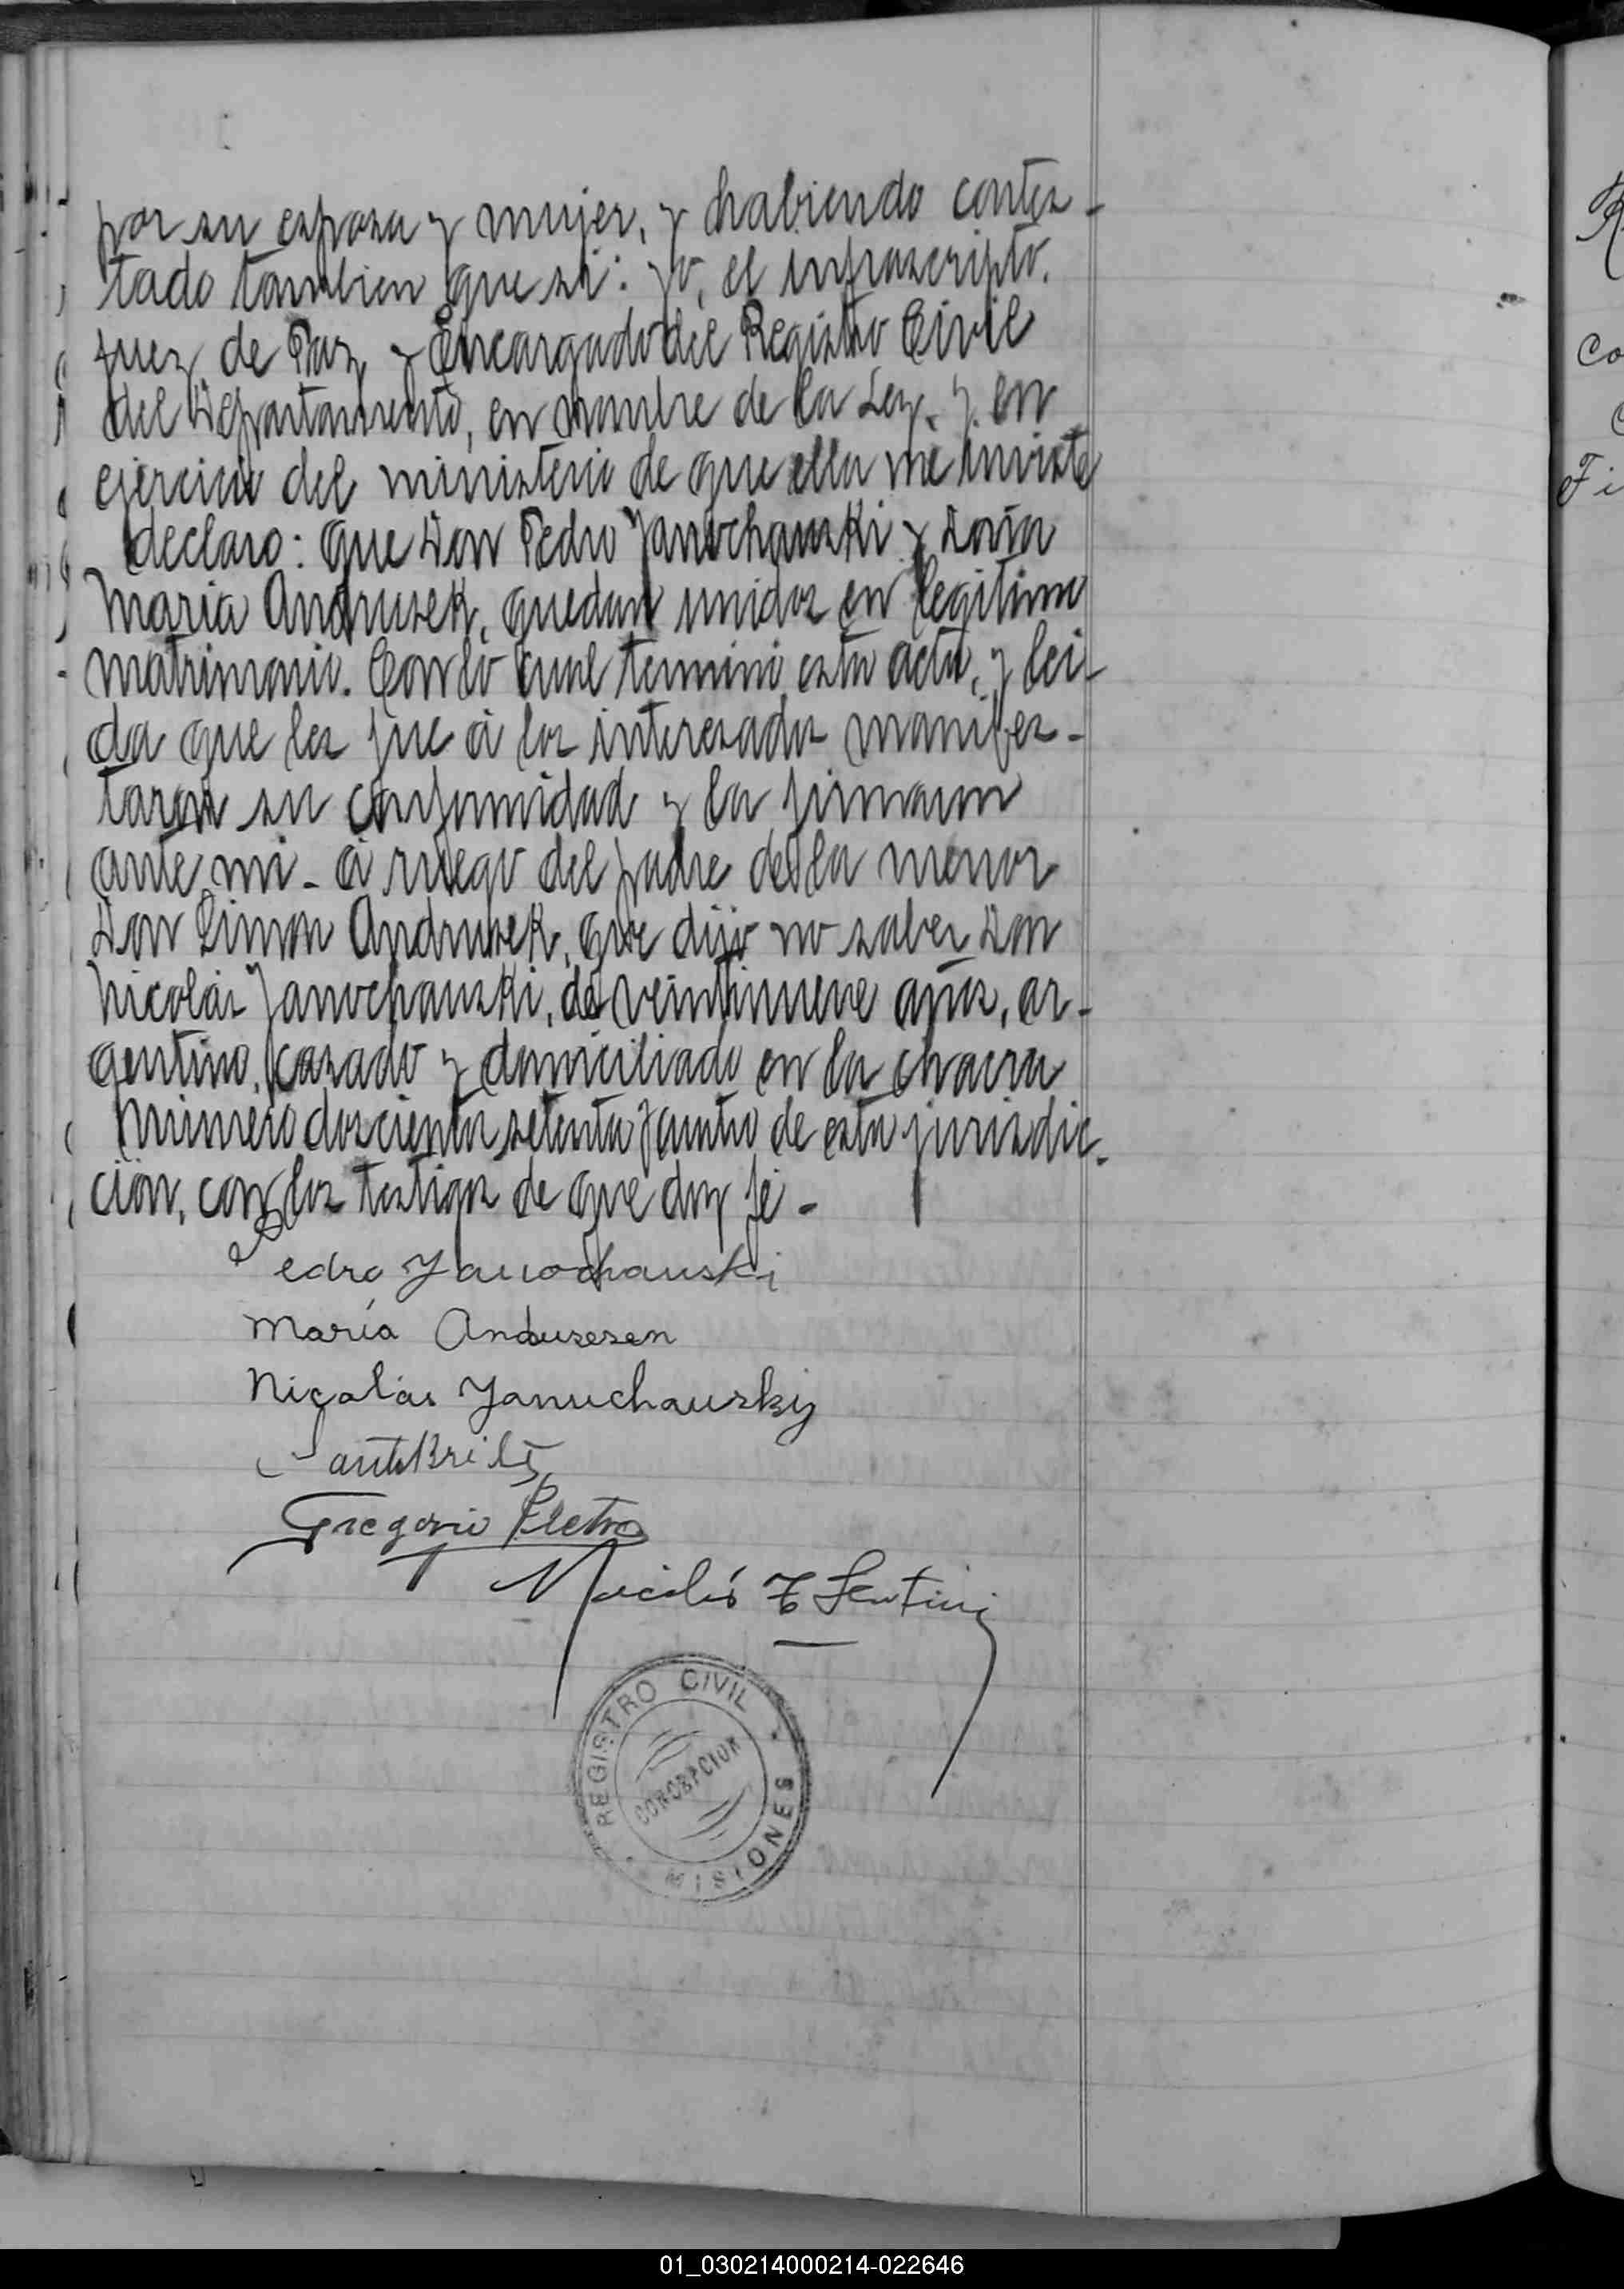 por su esposa y mujer, y habiendo contes-
tado tambien que si: yo, el infrascripto.
Juez de Paz, y Encargado del Registro Civil
del Departamento, en nombre de la Ley, y en
ejercicio del ministerio de que ella me inviste
declaro: que Don Pedro Yanochauski y Doña
Maria Andrusek, quedan unidos en legitimo
matrimonio. Con lo cual terminó esta acta, y lei-
da que les fue á los interesados manifes-
taron su conformidad y la firmaron
ante mi - á ruego del padre de la menor
Don Simon Andrusek, que dijo no saber Don
Nicolás Yanochauski, de veintinueve años, ar-
gentino, casado y domiciliado en la chacra
número doscientos setenta y cuatro de esta jurisdic-
ción, con los testigos de que doy fé -
Pedro Yanochauski
María Andusesen
Nicolás Yanuchausky
Gregorio
Nicolás
REGISTRO CIVIL
CONCEPCION
MISIONES
R
Co
Fi
01_030214000214-022646